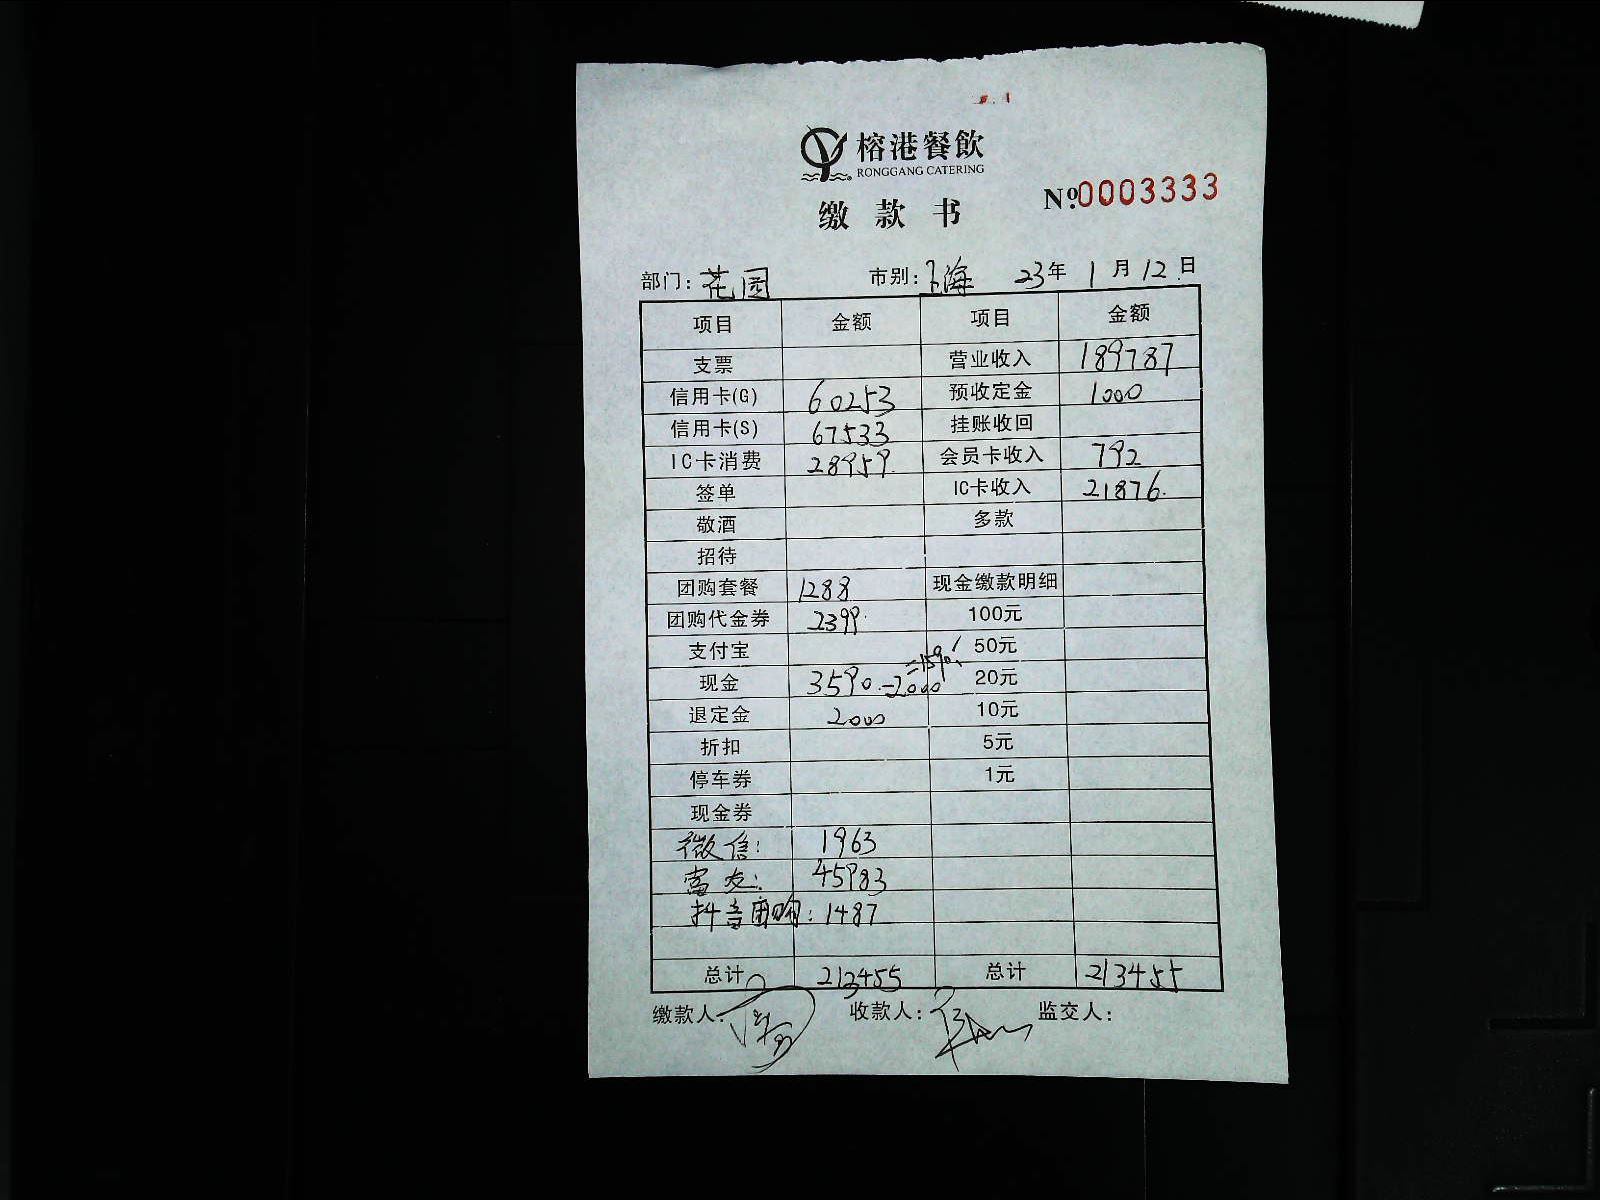 榕港餐飲
RONGGANG CATERING
缴款书
№0003333
部门：花园 市别：上海 23年1月12日
项目 金额 项目 金额
支票 营业收入 189787
信用卡(G) 60253 预收定金 1000
信用卡(S) 67533 挂账收回
IC卡消费 28959. 会员卡收入 792
签单 IC卡收入 21876.
敬酒 多款
招待
团购套餐 1288 现金缴款明细
团购代金券 2399. 100元
支付宝 50元
现金 3590.-2000=1590. 20元
退定金 2000 10元
折扣 5元
停车券 1元
现金券
微信： 1963
富友： 45983
抖音团购： 1487
总计 213455 总计 213455
缴款人： 收款人： 监交人：